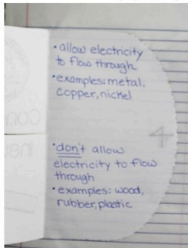 • allow electricity
to flow through
• examples: metal,
copper, nickel
• don't allow
electricity to flow
through
• examples: wood,
rubber, plastic